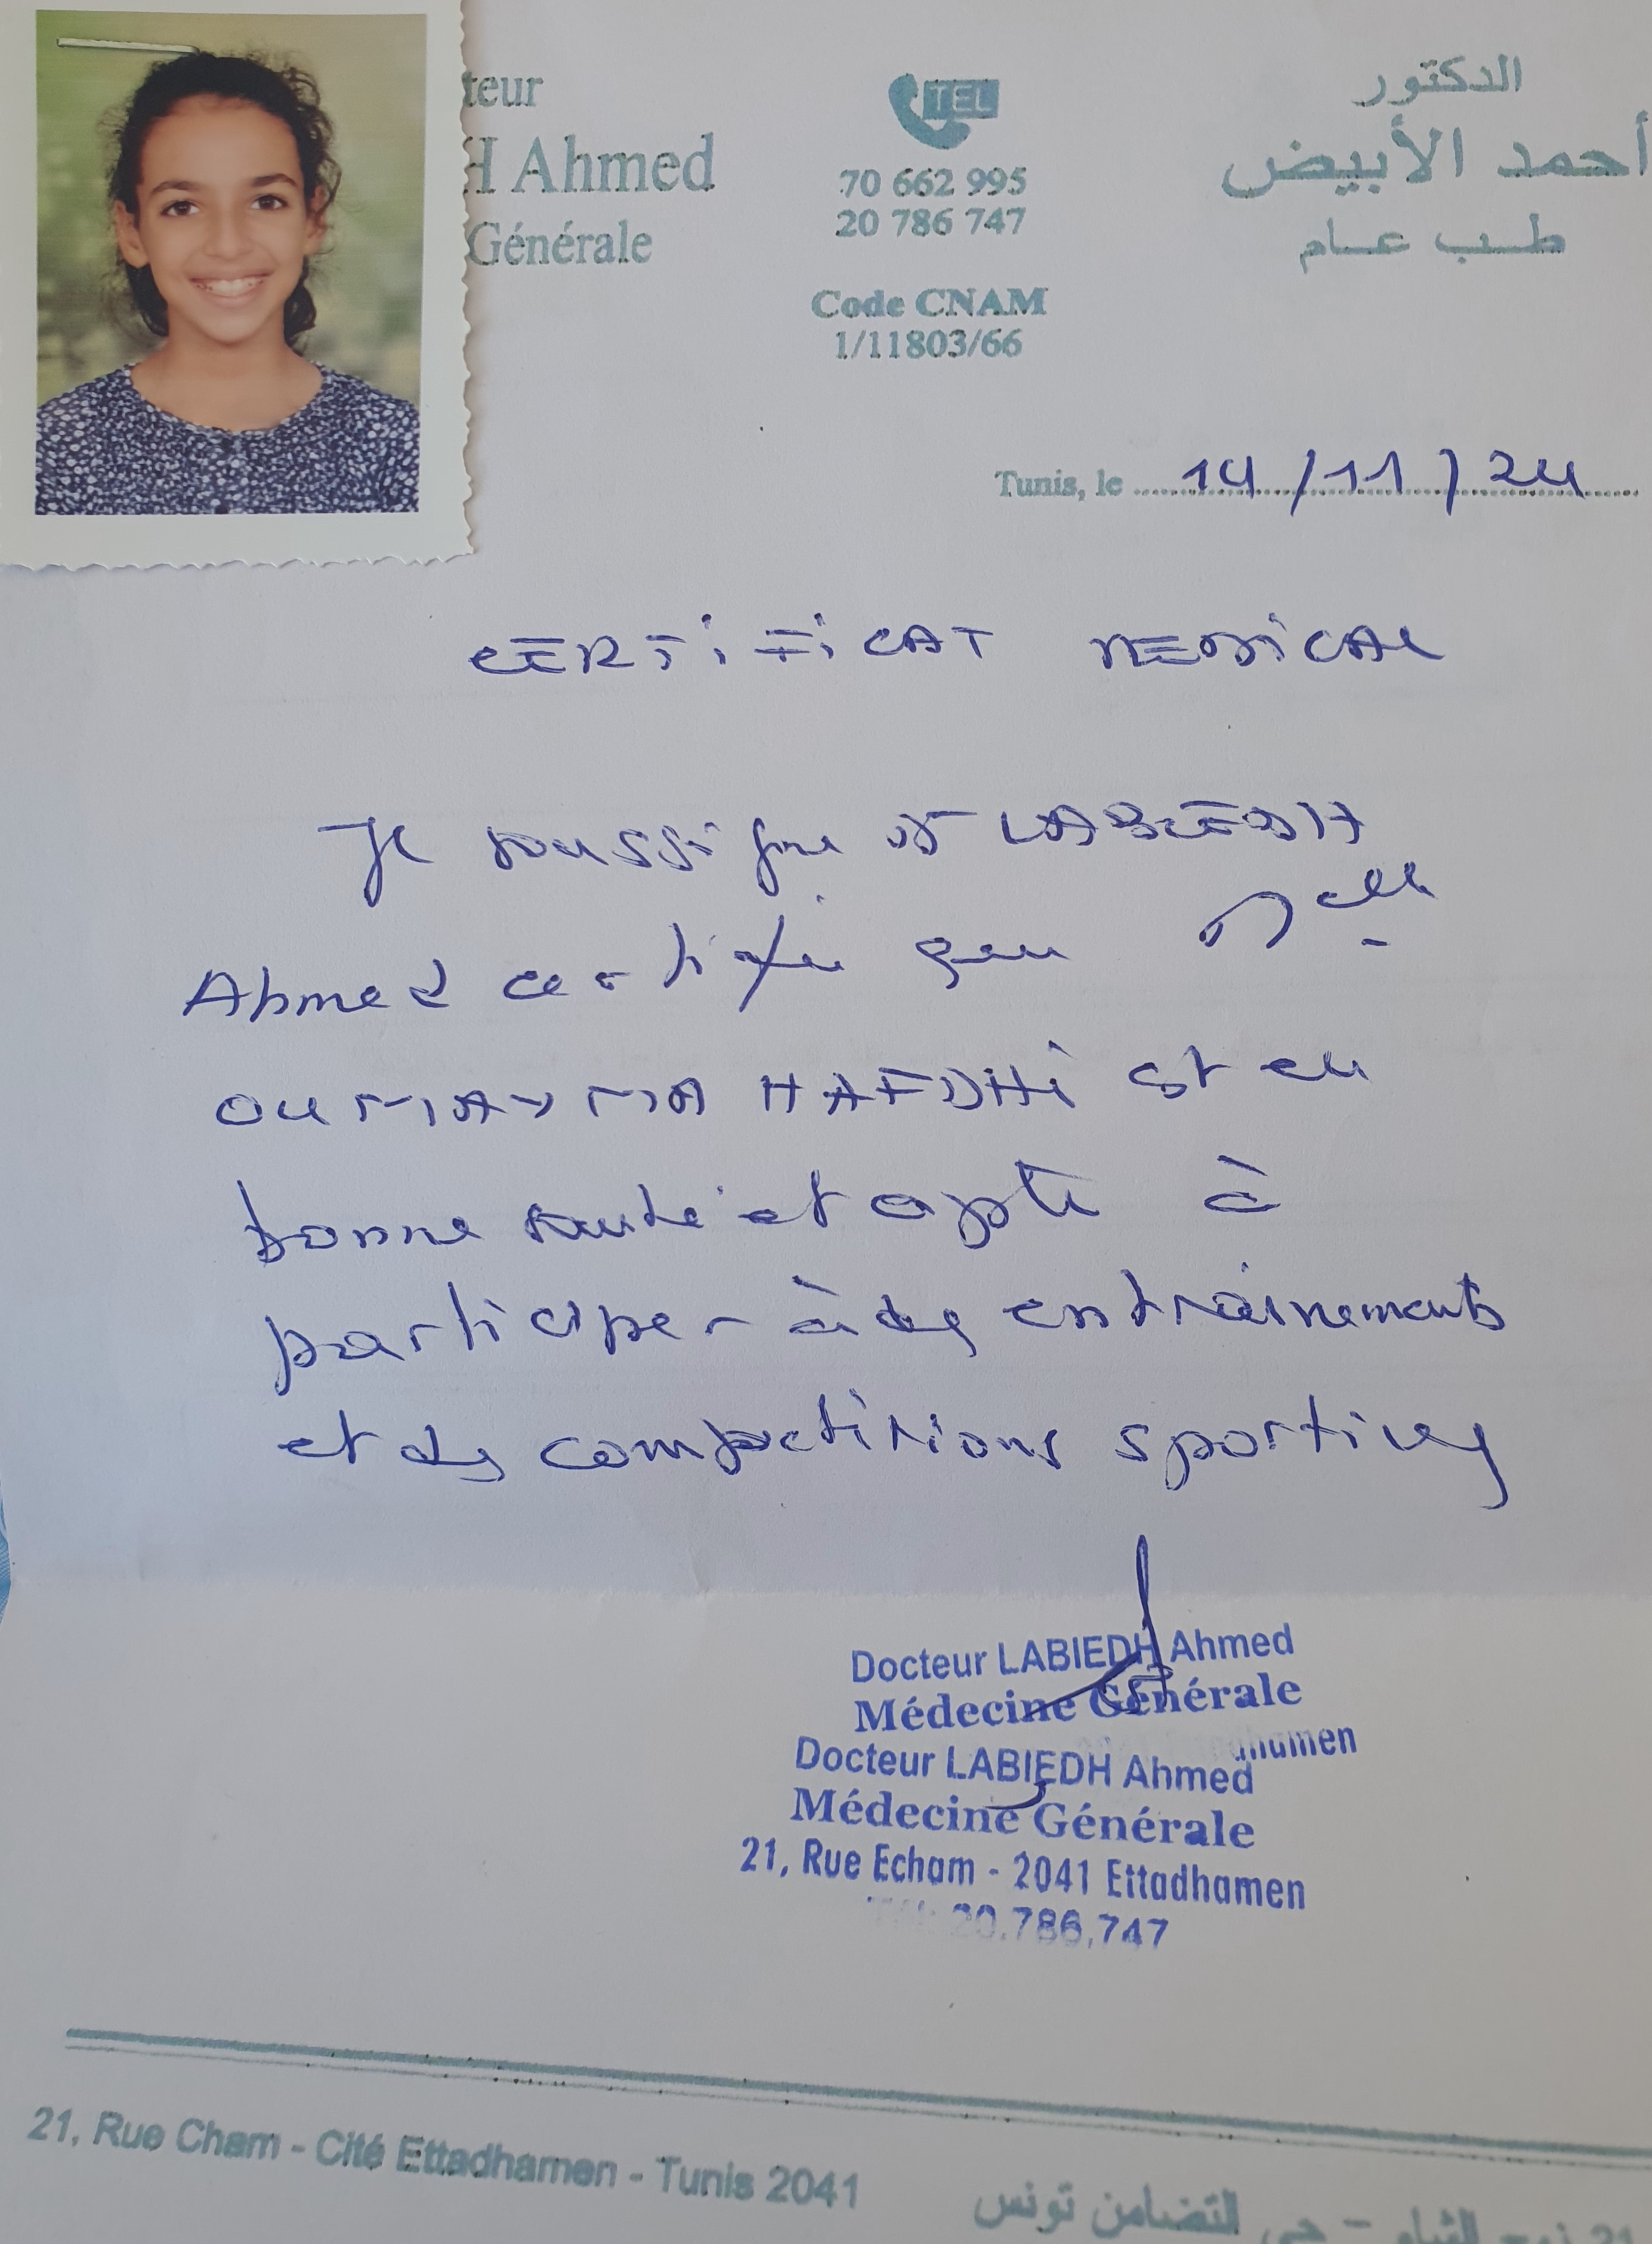 teur
H Ahmed
Générale
TEL
70 662 995
20 786 747
Code CNAM
1/11803/66
الدكتور
أحمد الأبيض
طب عام
Tunis, le 14/11/24
CERTIFICAT MEDICAL
Je soussigné Dr LABIEDH
Ahmed certifie que Melle
OUMAYMA HAFDHI est en
bonne santé et apte à
participer à des entraînements
et des compétitions sportives
Docteur LABIEDH Ahmed
Médecine Générale
dhamen
Docteur LABIEDH Ahmed
Médecine Générale
21, Rue Echam - 2041 Ettadhamen
Tél: 20.786.747
21, Rue Cham - Cité Ettadhamen - Tunis 2041
21 نهج الشام - حي التضامن تونس